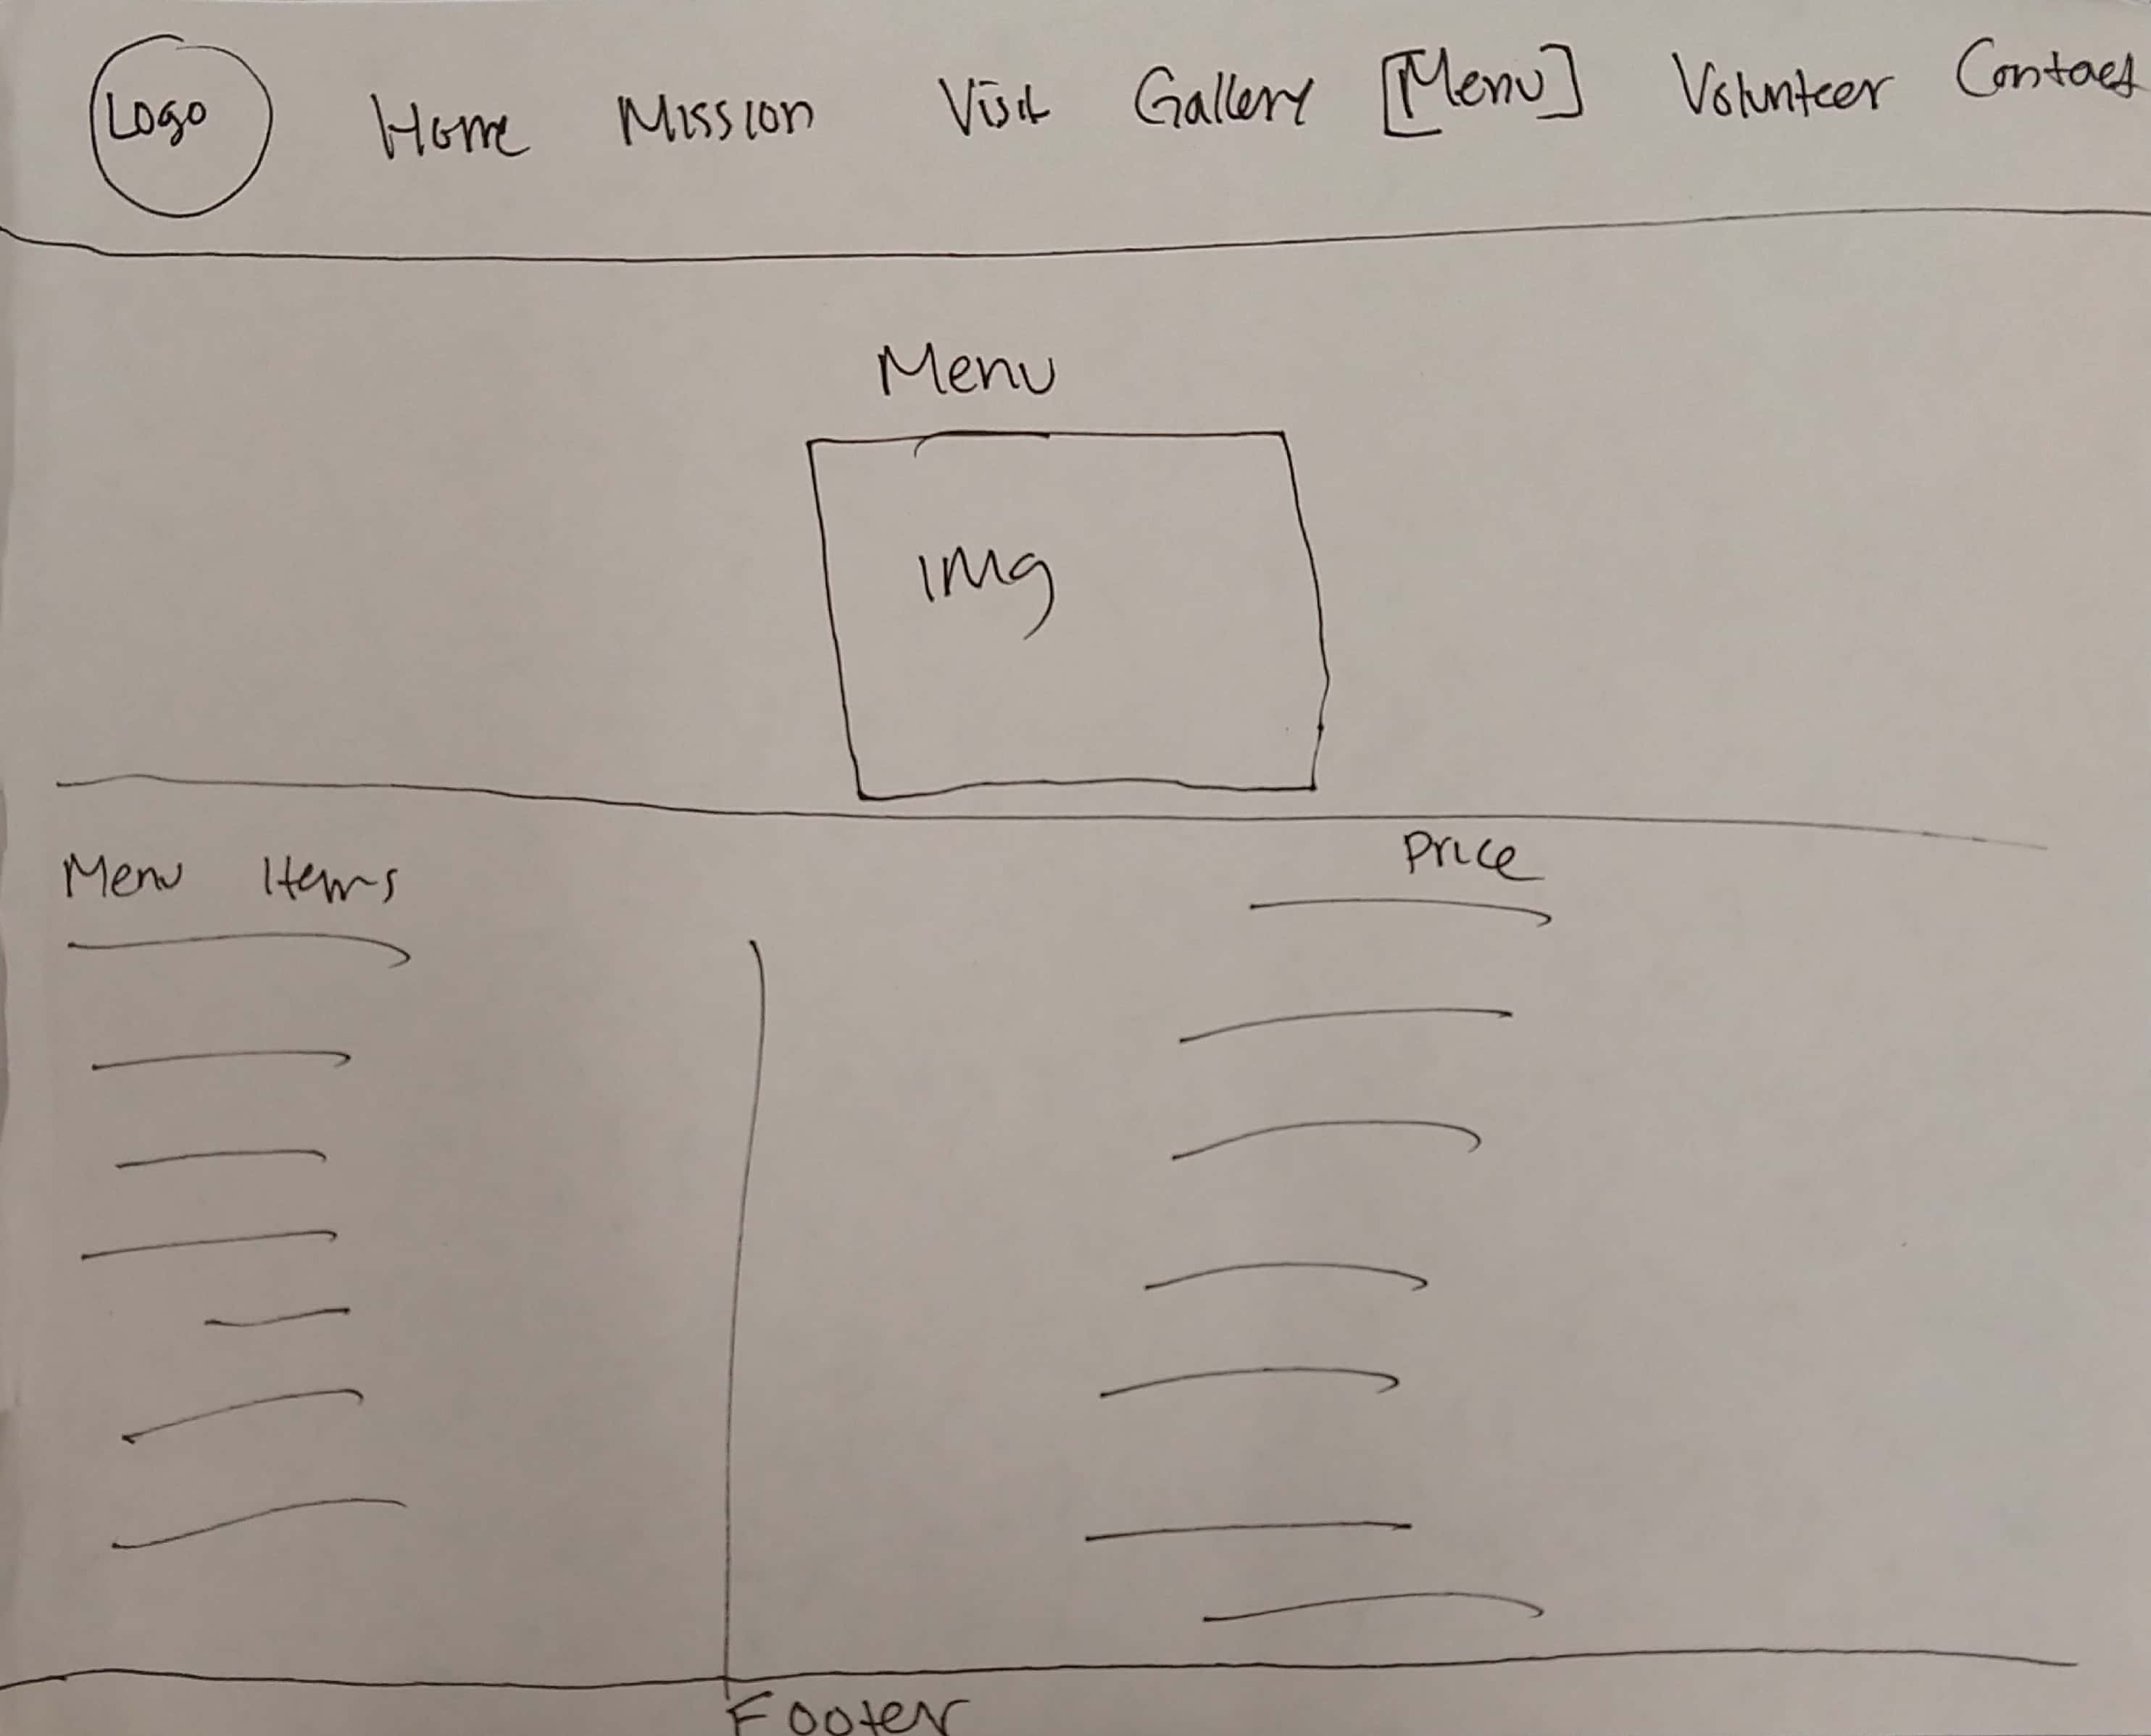 Logo Home Mission Visit Gallery [Menu] Volunteer Contact
Menu
img
Menu Items Price
Footer